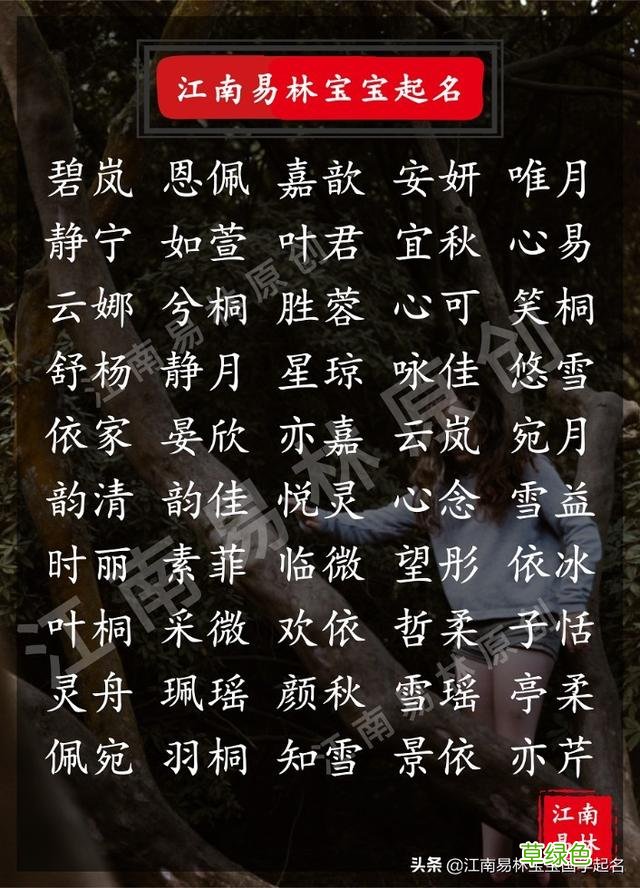 江南易林宝宝起名
碧岚 恩佩 嘉歆 安妍 唯月
静宁 如萱 叶君 宜秋 心易
云娜 兮桐 胜蓉 心可 笑桐
舒杨 静月 星琼 咏佳 悠雪
依家 晏欣 亦嘉 云岚 宛月
韵清 韵佳 悦灵 心念 雪益
时丽 素菲 临微 望彤 依冰
叶桐 采微 欢依 哲柔 子恬
灵舟 珮瑶 颜秋 雪瑶 亭柔
佩宛 羽桐 知雪 景依 亦芹
江南易林原创
江南易林原创
江南易林原创
江南
易林
草绿色
头条 @江南易林宝宝国学起名